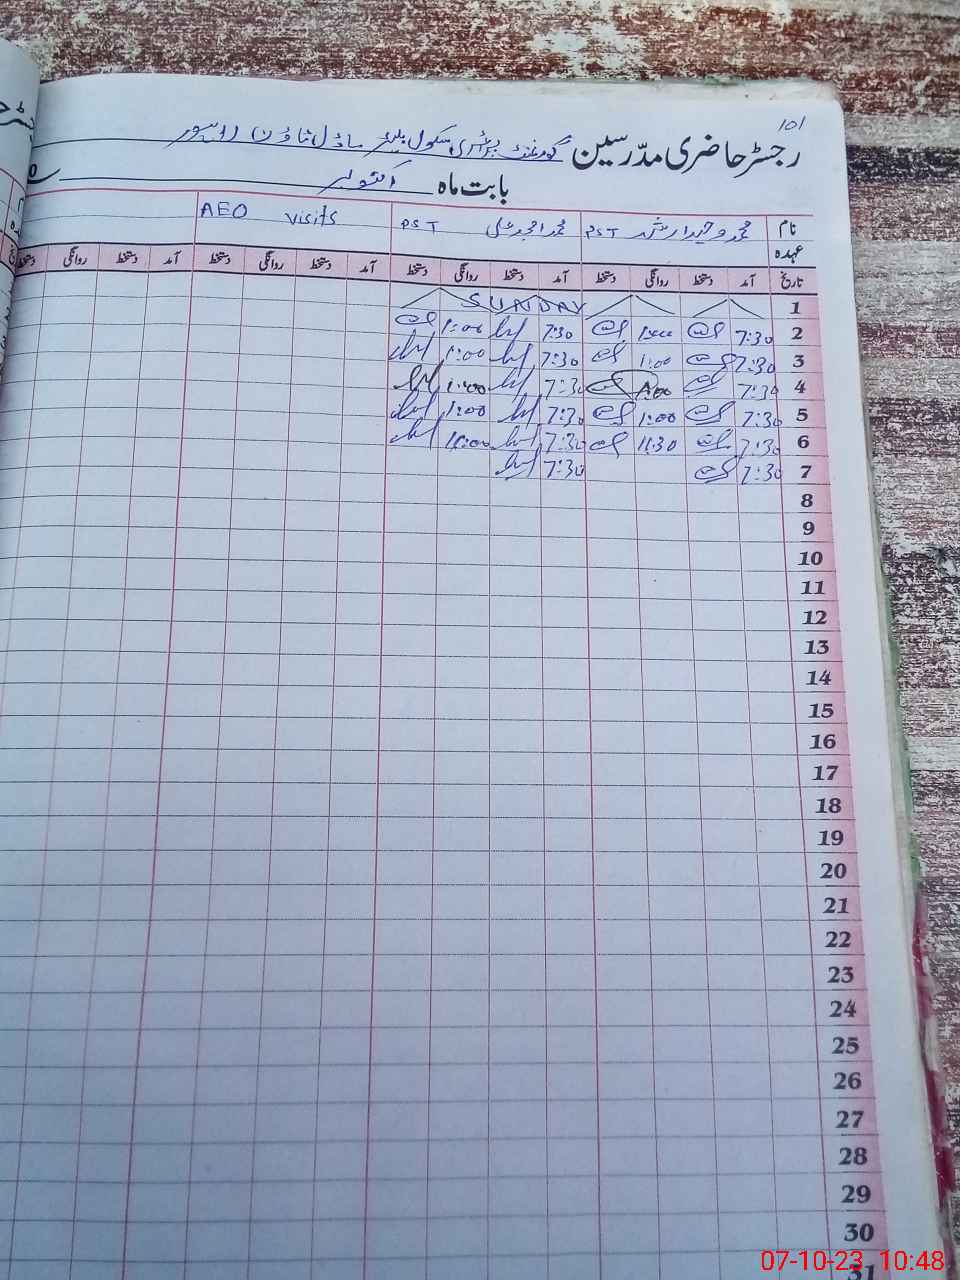 101
رجسٹر حاضری مدرسین گورنمنٹ پرائمری سکول بلیئر ماڈل ٹاؤن
بابت ماہ اکتوبر
نام محمد وحید ارشد PST محمد امجد علی PST AEO visits
عہدہ
تاریخ آمد دستخط روانگی دستخط آمد دستخط روانگی دستخط آمد دستخط روانگی دستخط آمد دستخط روانگی دستخط
1 SUNDAY
2 7:30 1:00 7:30 1:00
3 7:30 1:00 7:30 1:00
4 7:30 1:00 7:30 1:00
5 7:30 1:00 7:30 1:00
6 7:30 11:30 7:30
7 7:30 7:30
8
9
10
11
12
13
14
15
16
17
18
19
20
21
22
23
24
25
26
27
28
29
30
31
07-10-23 10:48